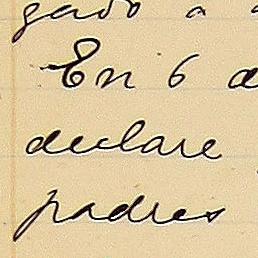 gado a
En 6 d
declare
padres